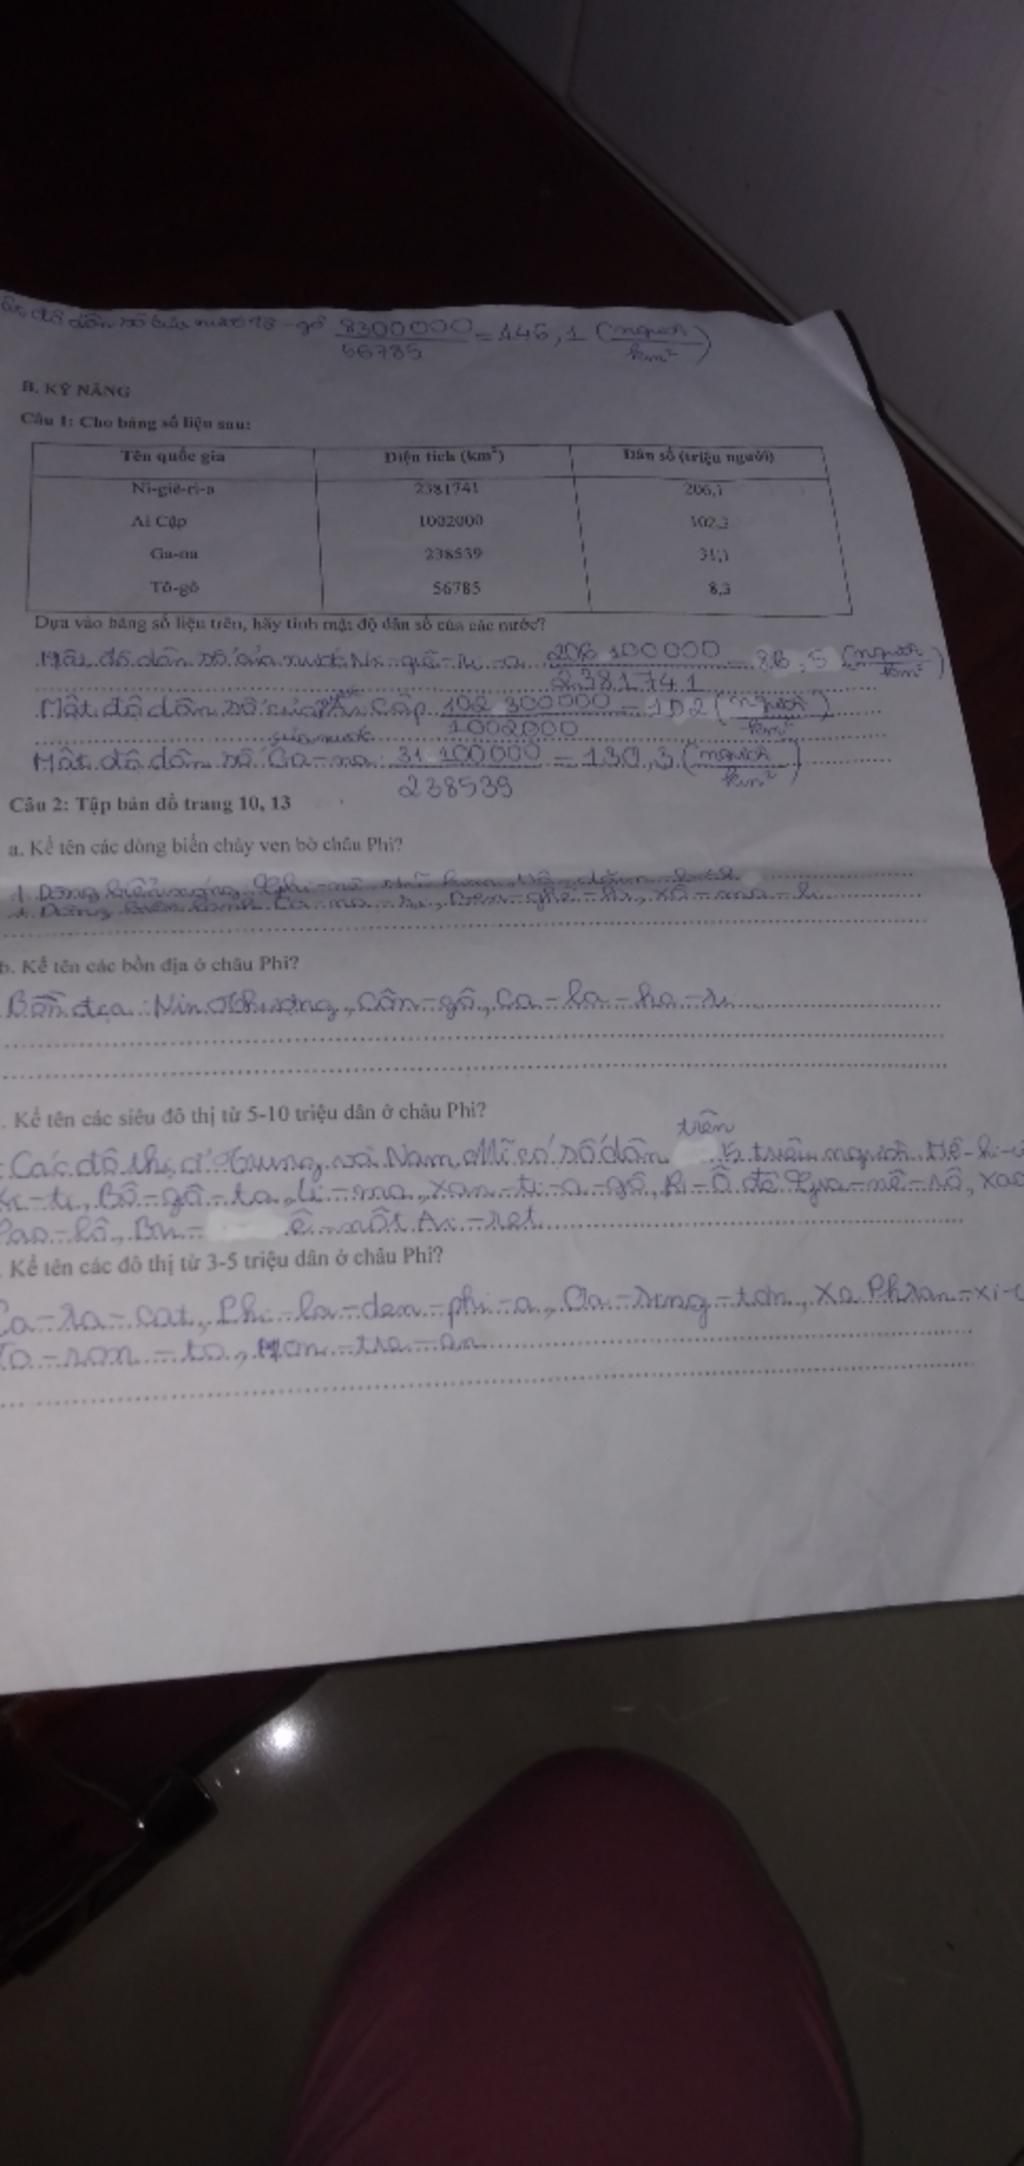 độ dân số của nước Tô-gô 8300000 = 146,1 (người)
56785 km²
B. KỸ NĂNG
Câu 1: Cho bảng số liệu sau:
Tên quốc gia Diện tích (km²) Dân số (triệu người)
Ni-giê-ri-a 2381741 206,1
Ai Cập 1002000 102,3
Ga-na 238539 31,1
Tô-gô 56785 8,3
Dựa vào bảng số liệu trên, hãy tính mật độ dân số của các nước?
Mật độ dân số của nước Ni-giê-ri-a 206 100 000 = 86,5 (người)
2381741 km²
Mật độ dân số của Ai Cập 102 300000 = 102 (người)
1002000 km²
của nước
Mật độ dân số Ga-na: 31 100000 = 130,3 (người)
238539 km²
Câu 2: Tập bản đồ trang 10, 13
a. Kể tên các dòng biển chảy ven bờ châu Phi?
+ Dòng biển nóng
+ Dòng biển lạnh Ca-na-ri, Ben-ghê-la, Xô-ma-li
b. Kể tên các bồn địa ở châu Phi?
Bồn địa: Nin Thượng, Côn-gô, Ca-la-ha-ri
. Kể tên các siêu đô thị từ 5-10 triệu dân ở châu Phi?
trên
Các đô thị ở Trung và Nam Mĩ có số dân 5 triệu người Mê-hi-
Bô-gô-ta, Li-ma, Xan-ti-a-gô, Ri-ô đê Gia-nê-rô, Xao
Pao-lô, Bu- ê-nốt Ai-ret
. Kể tên các đô thị từ 3-5 triệu dân ở châu Phi?
Ca-ra-cat, Phi-la-den-phi-a, Oa-sing-tơn, Xa Phran-xi-
Tô-rôn-tô, Môn-trê-an